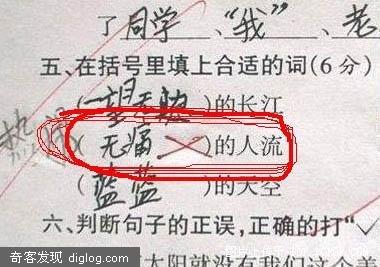 了同学、“我”、老
五、在括号里填上合适的词(6分)
(一望无)的长江
热 (无痛)的人流
(蓝蓝)的天空
六、判断句子的正误,正确的打“√
太阳就没有我们这个美
奇客发现 diglog.com